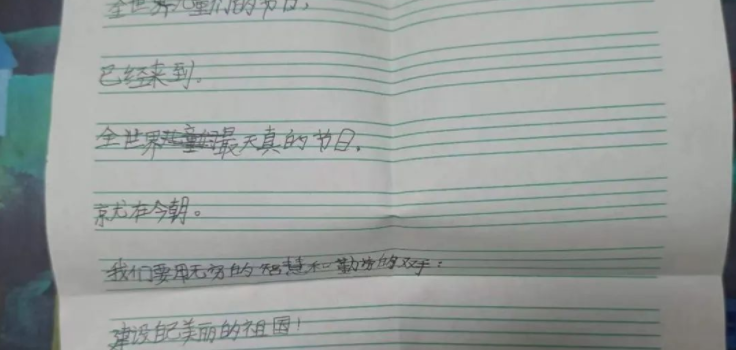 全世界儿童们的节日，
已经来到。
全世界最天真的节日，
就在今朝。
我们要用无穷的智慧和勤劳的双手：
建设自己美丽的祖国！